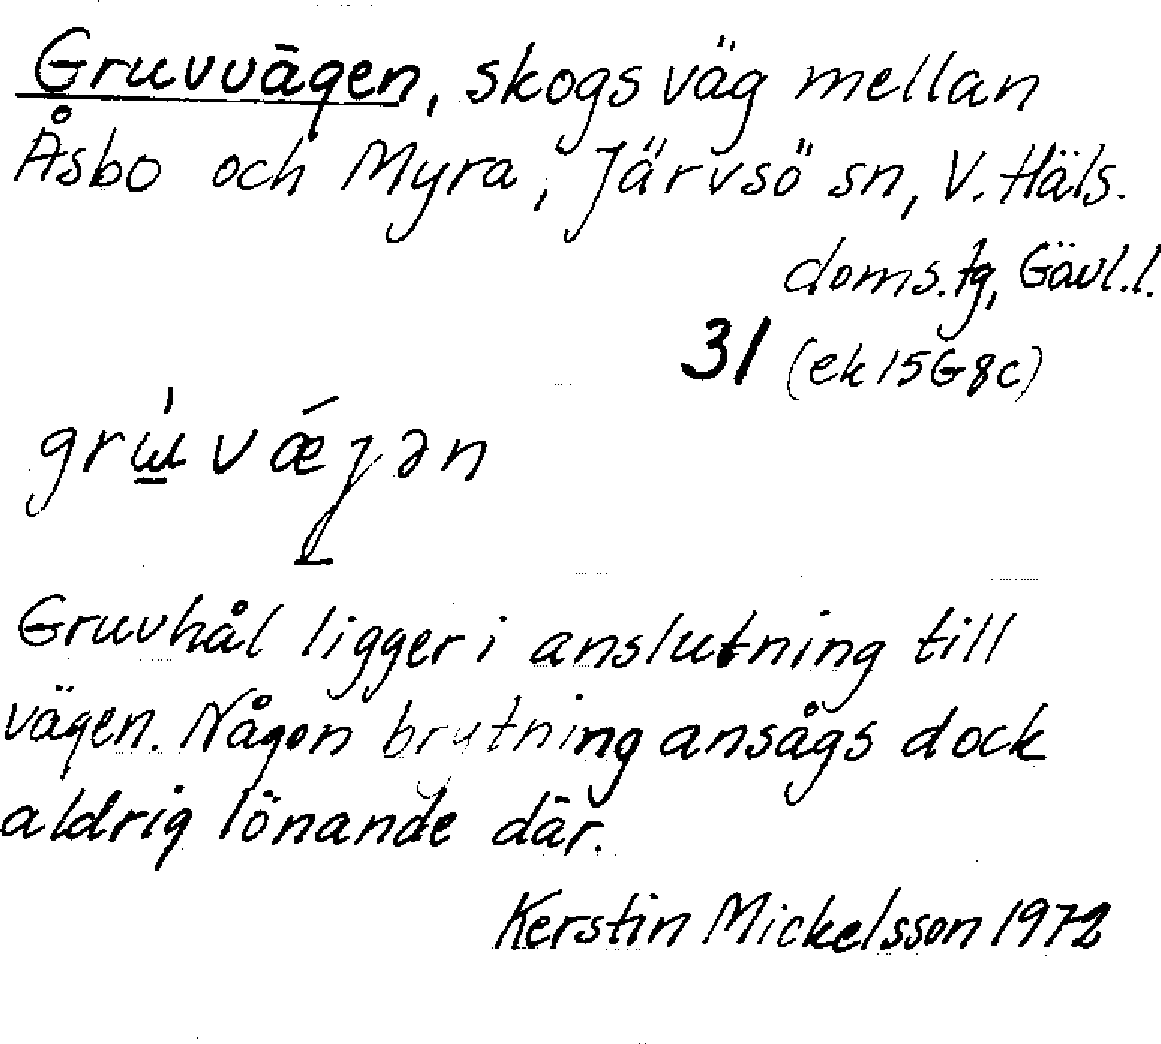 Gruvvägen, skogsväg mellan
Åsbo och Myra, Järvsö sn, V. Häls.
doms.tg, Gävl.l.
31 (ek 15G8c)
Gruvhål ligger i anslutning till
vägen. Någon brytning ansågs dock
aldrig lönande där.
Kerstin Mickelsson 1972